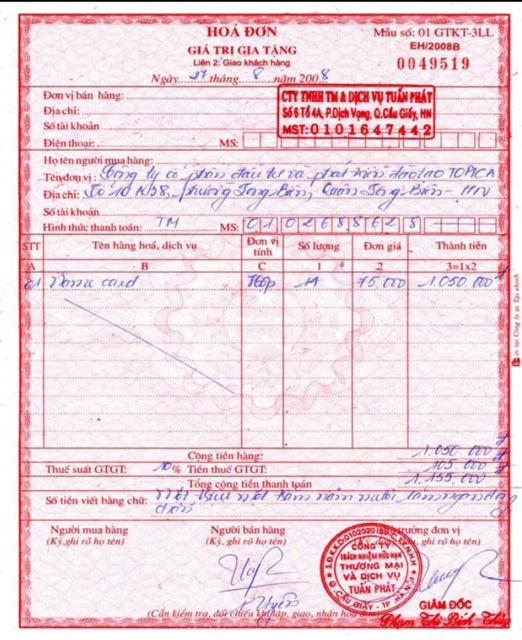 HOÁ ĐƠN
GIÁ TRỊ GIA TĂNG
Liên 2: Giao khách hàng
Ngày 27 tháng 8 năm 2008
Mẫu số: 01 GTKT-3LL
EH/2008B
0049519
Đơn vị bán hàng:
Địa chỉ:
Số tài khoản
Điện thoại: MS:
CTY TNHH TM & DỊCH VỤ TUẤN PHÁT
Số 6 Tổ 4A, P.Dịch Vọng, Q.Cầu Giấy, HN
MST: 0101647442
Họ tên người mua hàng:
Tên đơn vị: Công ty cổ phần đầu tư và phát triển đào tạo TOPICA
Địa chỉ: Số 10 A38, phường Long Biên, Quận Long Biên - HN
Số tài khoản
Hình thức thanh toán: TM MS: 0102688628
STT Tên hàng hoá, dịch vụ Đơn vị tính Số lượng Đơn giá Thành tiền
A B C 1 2 3=1x2
01 Name card Hộp 14 75,000 1.050.000đ
Cộng tiền hàng: 1.050.000đ
Thuế suất GTGT: 10% Tiền thuế GTGT: 105 000đ
Tổng cộng tiền thanh toán 1.155.000đ
Số tiền viết hàng chữ: Một triệu một trăm năm mươi lăm ngàn đồng
chẵn
Người mua hàng
(Ký, ghi rõ họ tên)
Người bán hàng
(Ký, ghi rõ họ tên)
trưởng đơn vị
ghi rõ họ tên)
CÔNG TY
TRÁCH NHIỆM HỮU HẠN
THƯƠNG MẠI
VÀ DỊCH VỤ
TUẤN PHÁT
Q. CẦU GIẤY - TP HÀ NỘI
GIÁM ĐỐC
Phạm Thị Bích
(Cần kiểm tra, đối chiếu khi lập, giao, nhận hoá đơn)